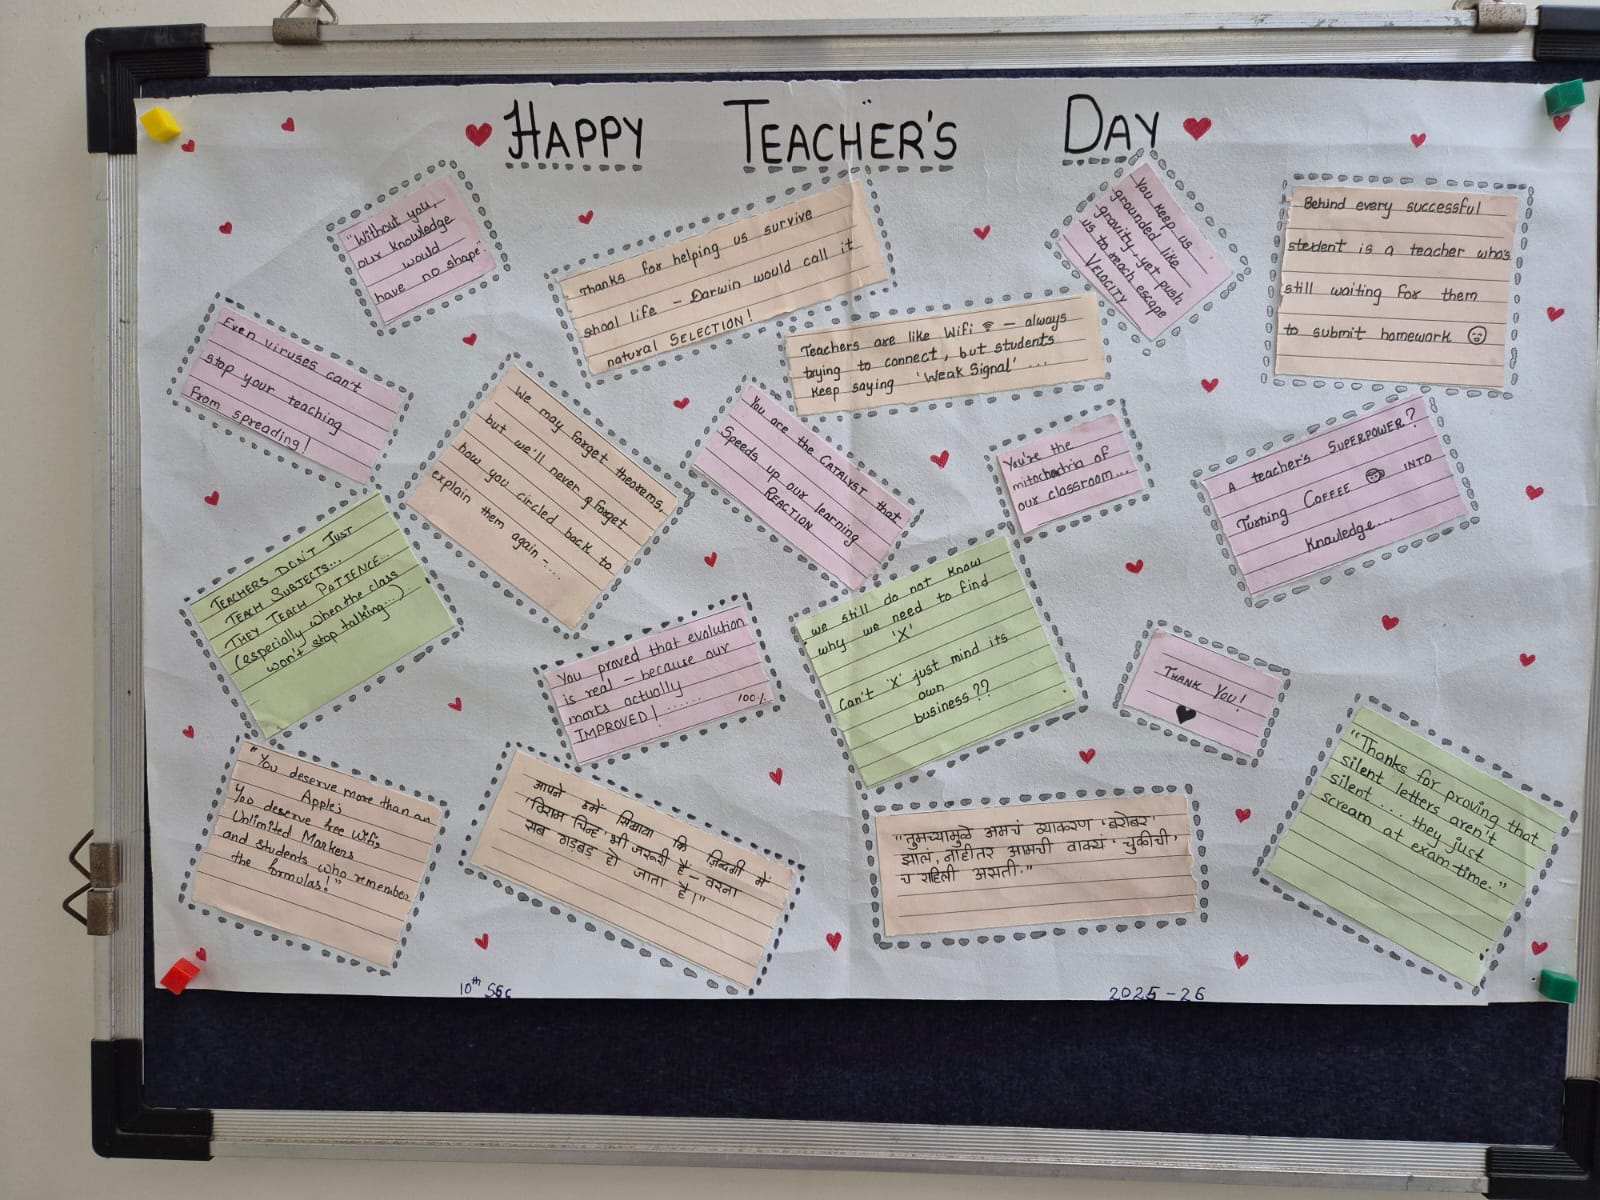 HAPPY TEACHER'S DAY
"Without you,
our knowledge
would
have no shape."
Thanks for helping us survive
school life - Darwin would call it
natural SELECTION!
You keep us
grounded like
gravity - yet push
us to reach escape
VELOCITY
Behind every successful
student is a teacher who's
still waiting for them
to submit homework
Even viruses can't
stop your teaching
from spreading!
We may forget theorems,
but we'll never forget
how you circled back to
explain them
again -...
Teachers are like Wifi - always
trying to connect, but students
keep saying 'Weak Signal' ....
You are the CATALYST that
Speeds up our learning
REACTION
You're the
mitochondria of
our classroom...
A teacher's SUPERPOWER?
Turning COFFEE INTO
Knowledge...
TEACHERS DON'T JUST
TEACH SUBJECTS...
THEY TEACH PATIENCE...
(especially when the class
won't stop talking...).
You proved that evolution
is real - because our
marks actually
IMPROVED! ...... 100%
we still do not know
why we need to find
'X'
Can't 'X' just mind its
own
business??
THANK YOU!
"You deserve more than an
Apple;
You deserve free Wifi,
Unlimited Markers
and students who remember
the formulas!"
आपने हमें सिखाया कि ज़िन्दगी में
'विराम चिन्ह' भी जरूरी हैं - वरना
सब गड़बड़ हो जाता है।"
"तुमच्यामुळे आमचं व्याकरण 'बरोबर'
झालं, नाहीतर आमची वाक्यं 'चुकीची'
च राहिली असती."
"Thanks for proving that
silent letters aren't
silent... they just
scream at exam-time."
10th SSC 2025-26